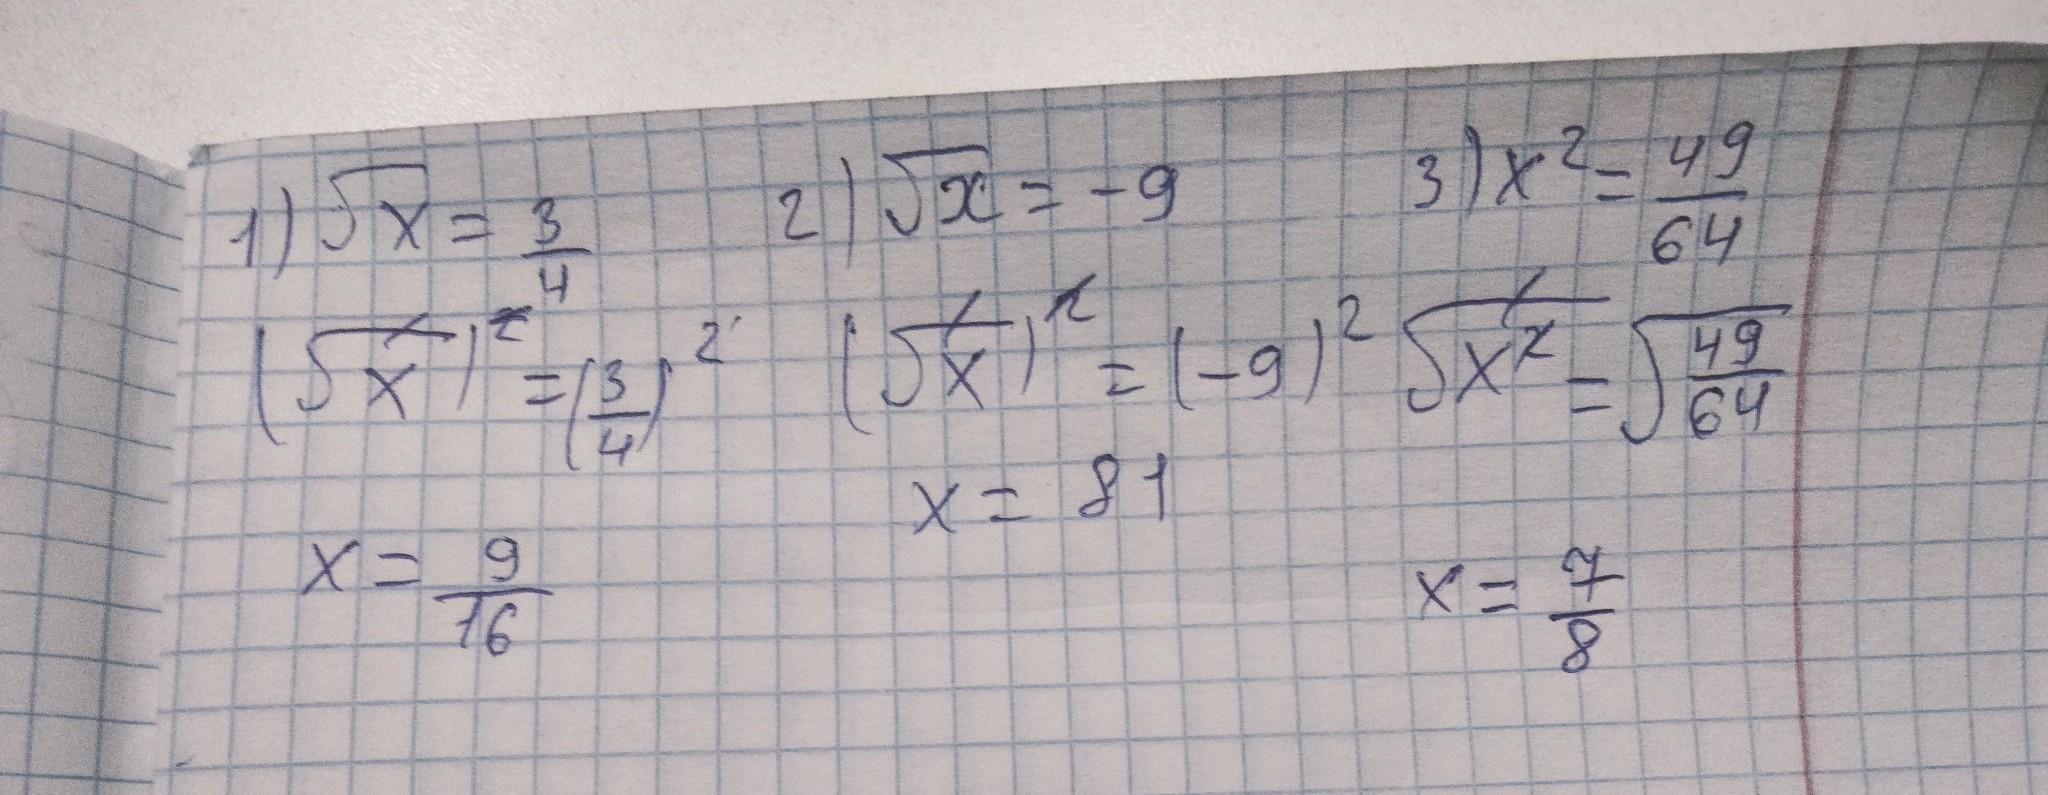 1) √x = 3/4
(√x)² = (3/4)²
x = 9/16
2) √x = -9
(√x)² = (-9)²
x = 81
3) x² = 49/64
√x² = √49/64
x = 7/8